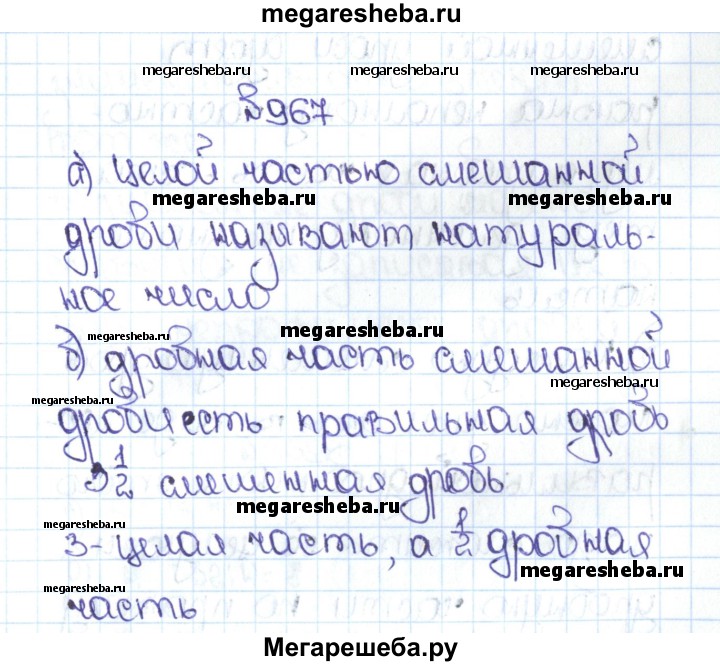 megaresheba.ru
megaresheba.ru megaresheba.ru megaresheba.ru
№967
а) Целой частью смешанной
megaresheba.ru megaresheba.ru
дроби называют натураль-
ное число
megaresheba.ru megaresheba.ru
б) дробная часть смешанной
megaresheba.ru
megaresheba.ru
дроби есть правильная дробь
3 1/2 смешенная дробь
megaresheba.ru
3-целая часть, а 1/2 дробная
megaresheba.ru megaresheba.ru
часть
Мегарешеба.ру